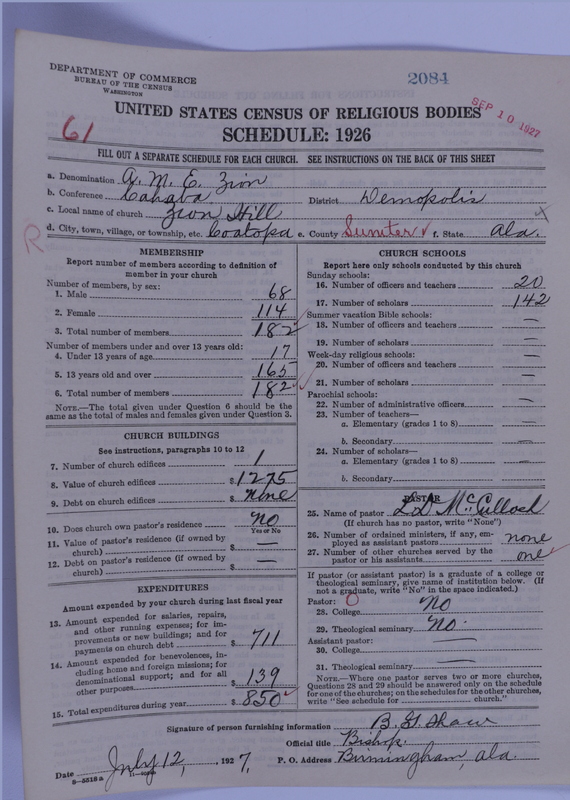 DEPARTMENT OF COMMERCE
BUREAU OF THE CENSUS
WASHINGTON
2084
SEP 10 1927
UNITED STATES CENSUS OF RELIGIOUS BODIES
61
SCHEDULE: 1926
FILL OUT A SEPARATE SCHEDULE FOR EACH CHURCH. SEE INSTRUCTIONS ON THE BACK OF THIS SHEET
a. Denomination A. M. E. Zion
b. Conference Cahaba District Demopolis
c. Local name of church Zion Hill
d. City, town, village, or township, etc. Coatopa e. County Sumter f. State Ala.
R
MEMBERSHIP
Report number of members according to definition of
member in your church
Number of members, by sex:
1. Male 68
2. Female 114
3. Total number of members 182
Number of members under and over 13 years old:
4. Under 13 years of age 17
5. 13 years old and over 165
6. Total number of members 182
NOTE.—The total given under Question 6 should be the
same as the total of males and females given under Question 3.
CHURCH BUILDINGS
See instructions, paragraphs 10 to 12
7. Number of church edifices 1
8. Value of church edifices $ 1275
9. Debt on church edifices $ none
10. Does church own pastor's residence No
Yes or No
11. Value of pastor's residence (if owned by
church) $ —
12. Debt on pastor's residence (if owned by
church) $ —
EXPENDITURES
Amount expended by your church during last fiscal year
13. Amount expended for salaries, repairs,
and other running expenses; for im-
provements or new buildings; and for
payments on church debt $ 711
14. Amount expended for benevolences, in-
cluding home and foreign missions; for
denominational support; and for all
other purposes $ 139
15. Total expenditures during year $ 850
CHURCH SCHOOLS
Report here only schools conducted by this church
Sunday schools:
16. Number of officers and teachers 20
17. Number of scholars 142
Summer vacation Bible schools:
18. Number of officers and teachers —
19. Number of scholars —
Week-day religious schools:
20. Number of officers and teachers —
21. Number of scholars —
Parochial schools:
22. Number of administrative officers —
23. Number of teachers—
a. Elementary (grades 1 to 8) —
b. Secondary —
24. Number of scholars—
a. Elementary (grades 1 to 8) —
b. Secondary —
PASTOR
25. Name of pastor L D McCulloch
(If church has no pastor, write "None")
26. Number of ordained ministers, if any, em-
ployed as assistant pastors none
27. Number of other churches served by the
pastor or his assistants one
If pastor (or assistant pastor) is a graduate of a college or
theological seminary, give name of institution below. (If
not a graduate, write "No" in the space indicated.)
Pastor: 0
28. College No
29. Theological seminary No.
Assistant pastor:
30. College —
31. Theological seminary —
NOTE.—Where one pastor serves two or more churches,
Questions 28 and 29 should be answered only on the schedule
for one of the churches; on the schedules for the other churches,
write "See schedule for church."
Signature of person furnishing information B. G. Shaw
Official title Bishop.
Date July 12, 1927, P. O. Address Birmingham, Ala.
8-5518a 11-